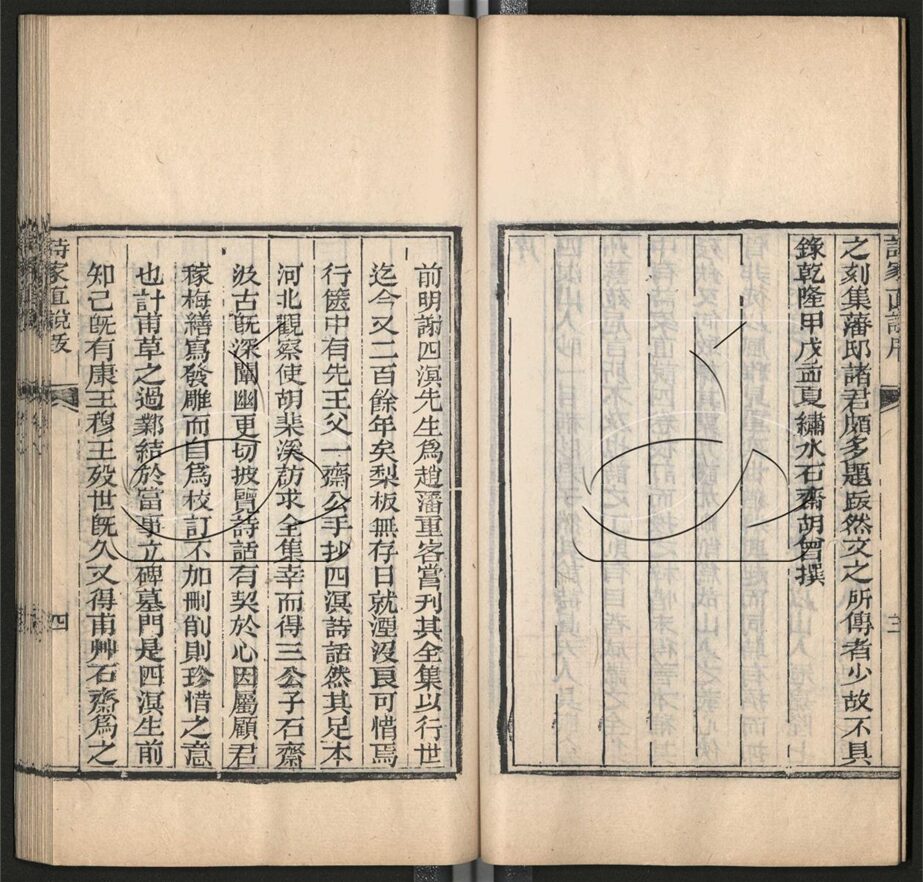 之刻集藩邸諸君頗多題跋然文之所傳者少故不具
錄乾隆甲戊孟夏繡水石齋胡曾撰
三
前明謝四溟先生爲趙藩重客嘗刊其全集以行世
迄今又二百餘年矣梨板無存日就湮沒良可惜焉
行篋中有先王父一齋公手抄四溟詩話然其足本
河北觀察使胡葉溪訪求全集幸而得三公子石齋
汲古旣深闡幽更切披覽詩話有契於心因屬顧君
稼梅繕寫發雕而自爲校訂不加刪削則珍惜之意
也計甫草之過鄴結於富事立碑墓門是四溟生前
知己旣有康王穆王歿世旣久又得甫艸石齋爲之
詩家直說跋
四